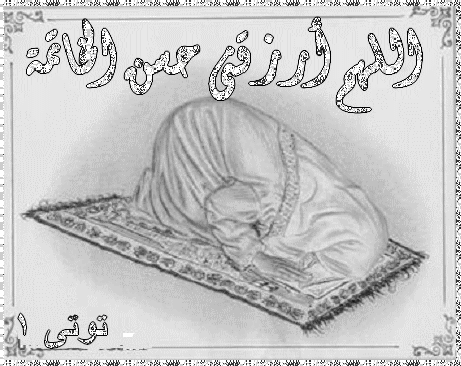 اللهم أرزقني حسن الخاتمة
توتى ١